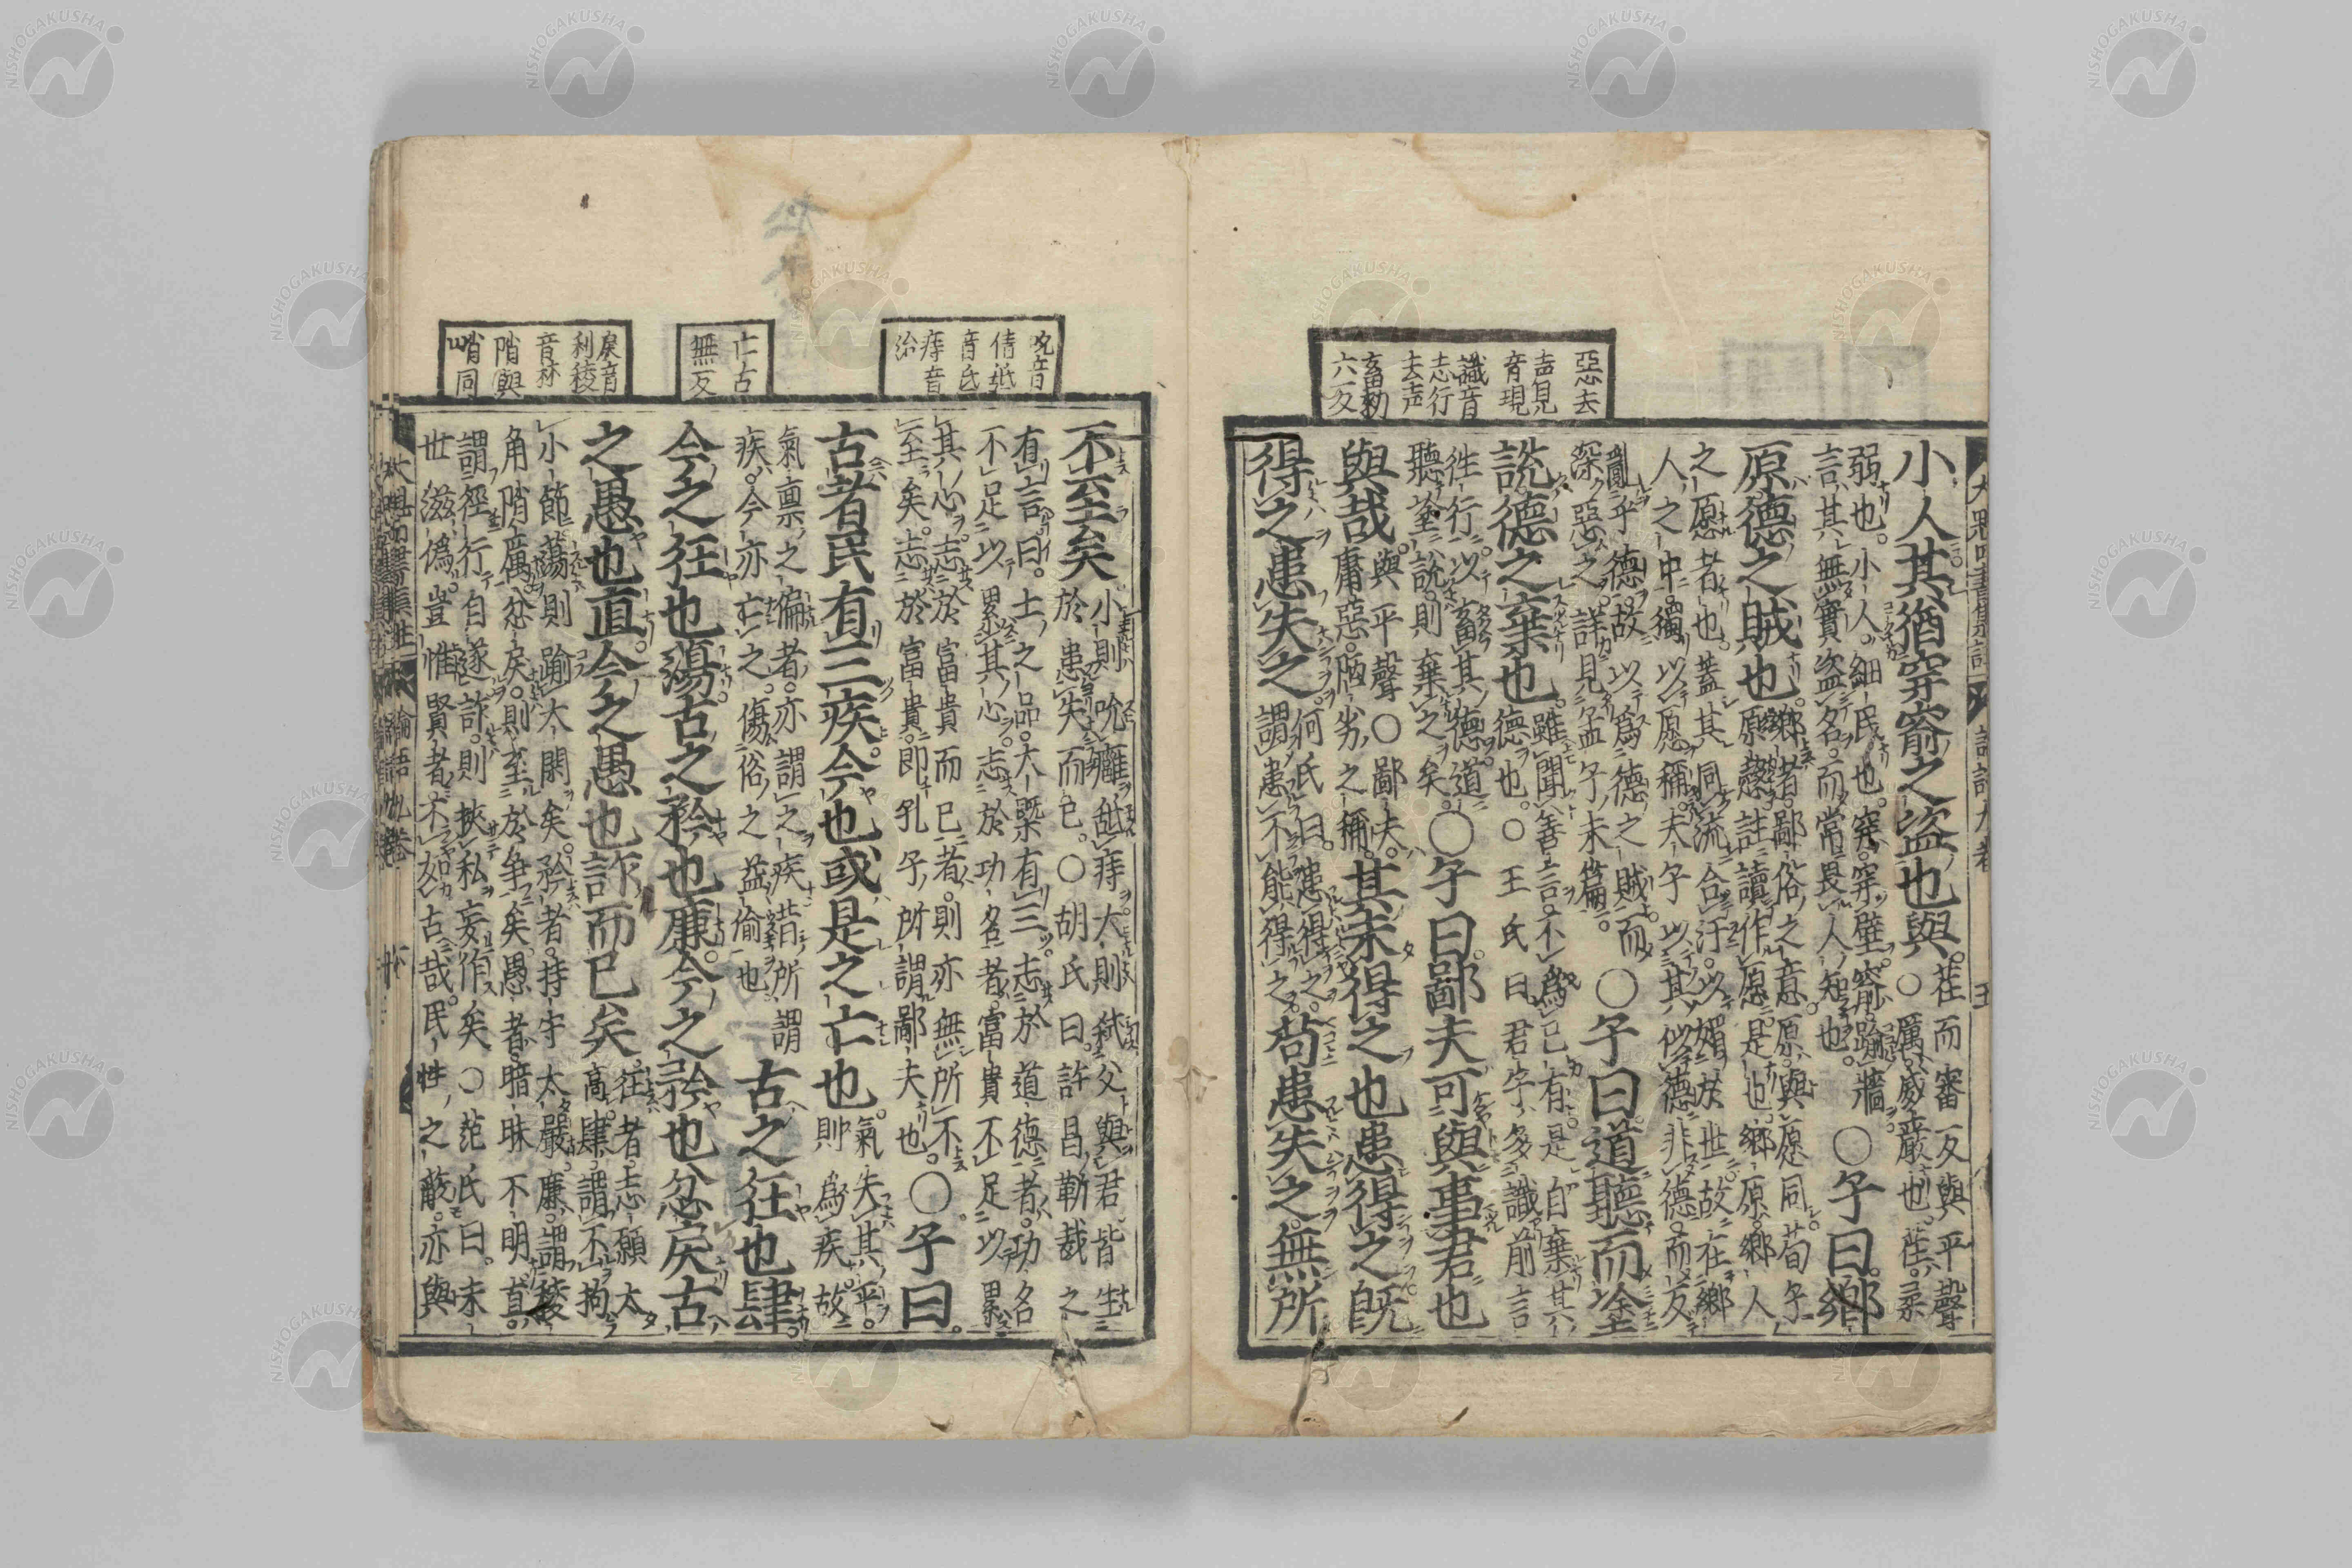 惡去
声見
音現
識音
志行
去声
畜勑
六反
小人其猶穿窬之盜也與。荏而審反與平聲
○厲威嚴也。荏柔
弱也。小人細民也。穿穿壁。窬踰牆
言其無實盜名。而常畏人知也。○子曰。鄉
原德之賊也。鄉者鄙俗之意。原與愿同。荀子
原愨註讀作愿是也。鄉原鄉人
之愿者也。蓋其同流合汙。以媚於世。故在鄉
人之中。獨以愿稱。夫子以其似德非德。而反
亂乎德。故以爲德之賊而
深惡之。詳見孟子末篇。○子曰。道聽而塗
說。德之棄也。雖聞善言。不爲己有。是自棄其
德也。○王氏曰。君子多識前言
徃行。以畜其德。道
聽塗說。則棄之矣。○子曰。鄙夫可與事君也
與哉。與平聲○鄙夫。
庸惡陋劣之稱。其未得之也患得之既
得之患失之。何氏曰。患得之。
謂患不能得之。苟患失之。無所
呪音
倩䑛
音氏
痔音
治
亡古
無反
戾音
利稜
音
陗與
峭同
不至矣。小則吮癰䑛痔。大則弑父與君。皆生
於患失而已。○胡氏曰。許昌靳裁之
有言曰。士之品。大槩有三。志於道德者。功名
不足以累其心。志於功名者。富貴不足以累
其心。志於富貴而已者。則亦無所不
至矣。志於富貴。即孔子所謂鄙夫也。○子曰。
古者民有三疾。今也或是之亡也。氣失其平。
則爲疾。故
氣稟之偏者。亦謂之疾。昔所謂
疾。今亦亡之。傷俗之益偷也。古之狂也肆
今之狂也蕩。古之矜也廉。今之矜也忿戾。古
之愚也直。今之愚也詐而已矣。狂者。志願太
高。肆。謂不拘
小節。蕩則踰大閑矣。矜者。持守太嚴。廉。謂稜
角陗厲。忿戾。則至於爭矣。愚者。暗昧不明。直。
謂徑行自遂。詐。則挾私妄作矣。○范氏曰。末
世滋僞。豈惟賢者不如古哉。民性之蔽。亦與